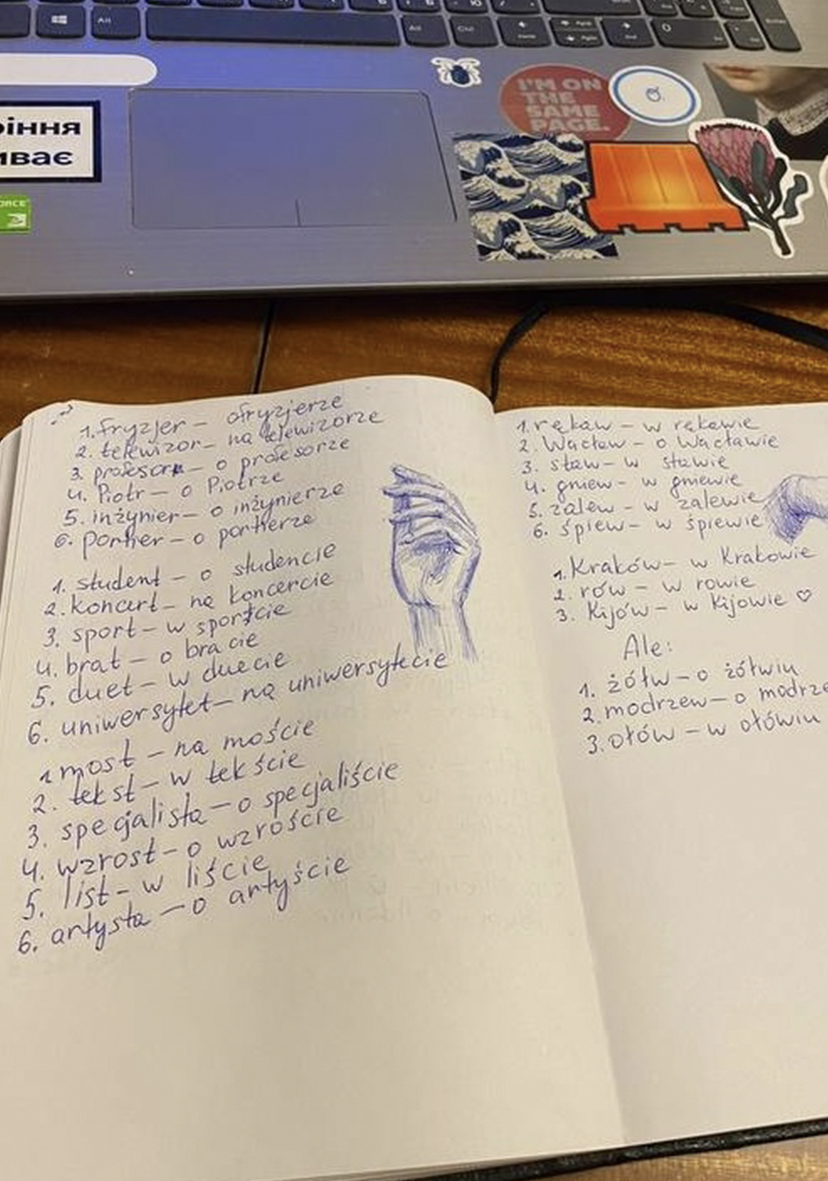 Alt
Alt
Ctrl
End
0
Enter
I'M ON
THE
SAME
PAGE.
іння
иває
ORCE
1. fryzjer – ofryzjerze
2. telewizor – na telewizorze
3. profesor – o profesorze
4. Piotr – o Piotrze
5. inżynier – o inżynierze
6. portier – o portierze
1. student – o studencie
2. koncert – na koncercie
3. sport – w sporcie
4. brat – o bracie
5. duet – w duecie
6. uniwersytet – na uniwersytecie
1 most – na moście
2. tekst – w tekście
3. specjalista – o specjaliście
4. wzrost – o wzroście
5. list – w liście
6. artysta – o artyście
1. rękaw – w rękawie
2. Wacław – o Wacławie
3. staw – w stawie
4. gniew – w gniewie
5. zalew – w zalewie
6. śpiew – w śpiewie
1. Kraków – w Krakowie
2. rów – w rowie
3. Kijów – w Kijowie ♡
Ale:
1. żółw – o żółwiu
2. modrzew – o modrze
3. ołów – w ołowiu